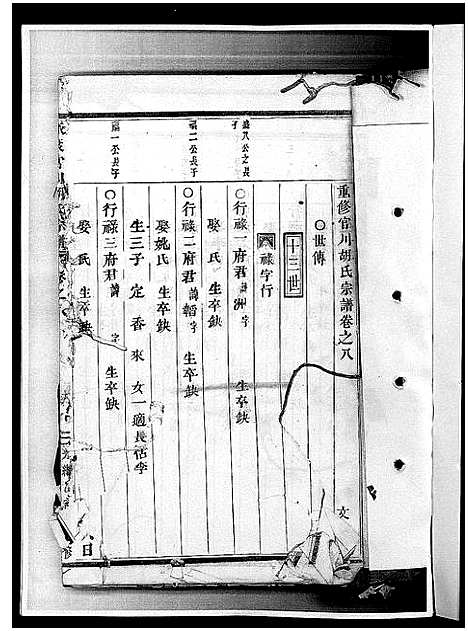 重修官川胡氏宗譜卷之八
文
○世傳
十三世
祿字行
○行祿一府君諱洲字 生卒缺
娶 氏 生卒缺
○行祿二府君諱韜字 生卒缺
娶姚氏 生卒缺
生三子 定 香 來 女一適長佔李
○行祿三府君諱 字 生卒缺
娶 氏 生卒缺
盛八公之長子
福二公長子
福一公長子